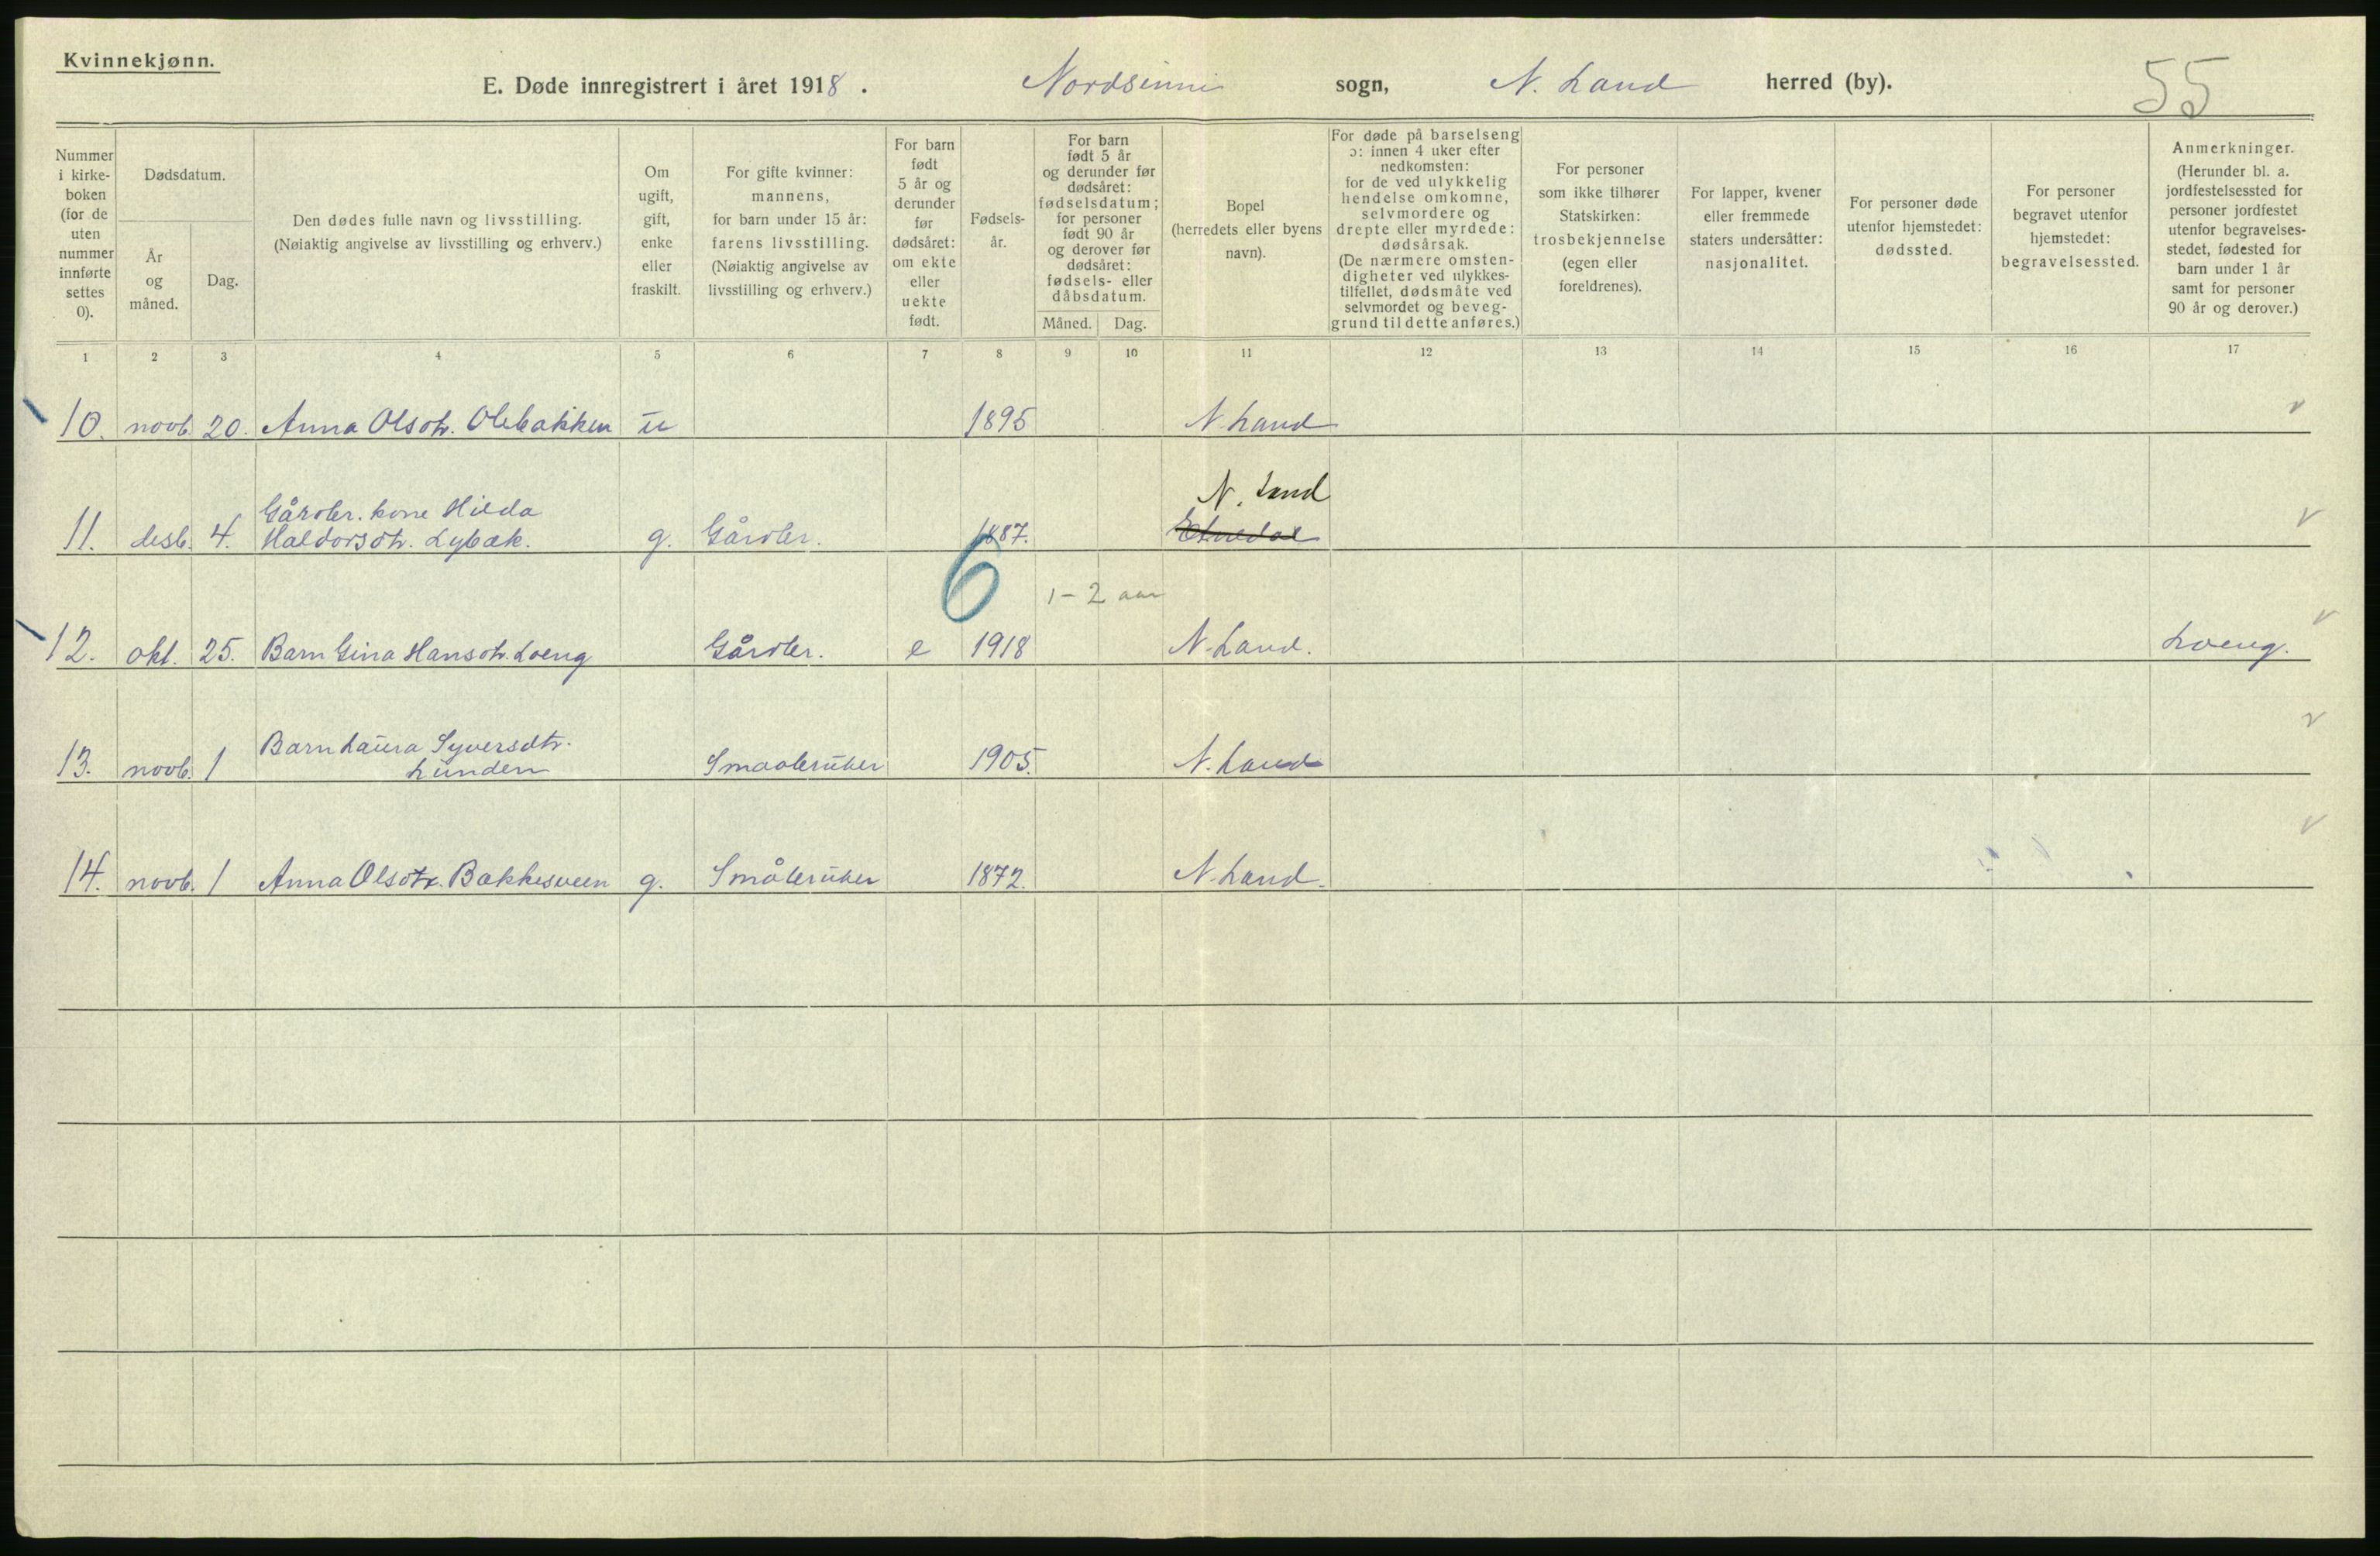 Kvinnekjønn.
E. Døde innregistrert i året 1918. Nordsinni sogn, N. Land herred (by). 55
Nummer i kirke-boken (for de uten nummer innførte settes 0).
Dødsdatum.
År og måned.
Dag.
Den dødes fulle navn og livsstilling.
(Nøiaktig angivelse av livsstilling og erhverv.)
Om ugift, gift, enke eller fraskilt.
For gifte kvinner: mannens, for barn under 15 år: farens livsstilling. (Nøiaktig angivelse av livsstilling og erhverv.)
For barn født 5 år og derunder før dødsåret: om ekte eller uekte født.
Fødsels-år.
For barn født 5 år og derunder før dødsåret: fødselsdatum; for personer født 90 år og derover før dødsåret: fødsels- eller dåbsdatum.
Måned. Dag.
Bopel (herredets eller byens navn).
For døde på barselseng ɔ: innen 4 uker efter nedkomsten: for de ved ulykkelig hendelse omkomne, selvmordere og drepte eller myrdede: dødsårsak. (De nærmere omsten-digheter ved ulykkes-tilfellet, dødsmåte ved selvmordet og beveg-grund til dette anføres.)
For personer som ikke tilhører Statskirken: trosbekjennelse (egen eller foreldrenes).
For lapper, kvener eller fremmede staters undersåtter: nasjonalitet.
For personer døde utenfor hjemstedet: dødssted.
For personer begravet utenfor hjemstedet: begravelsessted.
Anmerkninger. (Herunder bl. a. jordfestelsessted for personer jordfestet utenfor begravelses-stedet, fødested for barn under 1 år samt for personer 90 år og derover.)
1 2 3 4 5 6 7 8 9 10 11 12 13 14 15 16 17
10. novb. 20. Anna Olsdtr. Olebakken u 1895 N. Land
N. Land
Gårdbr. kone Hilda
11. desb. 4. Haldorsdtr. Lybæk. g. Gårdbr. 1887. Etnedal
6 1-2 aar
12. okt. 25. Barn Gina Hansdtr. Loeng Gårdbr. e 1918 N. Land. Loeng.
Barn Laura Syversdtr.
13. novb. 1 Lunden Smaabruker 1905. N. Land
14. novb. 1 Anna Olsdtr. Bakkesveen g. Småbruker 1872. N. Land.